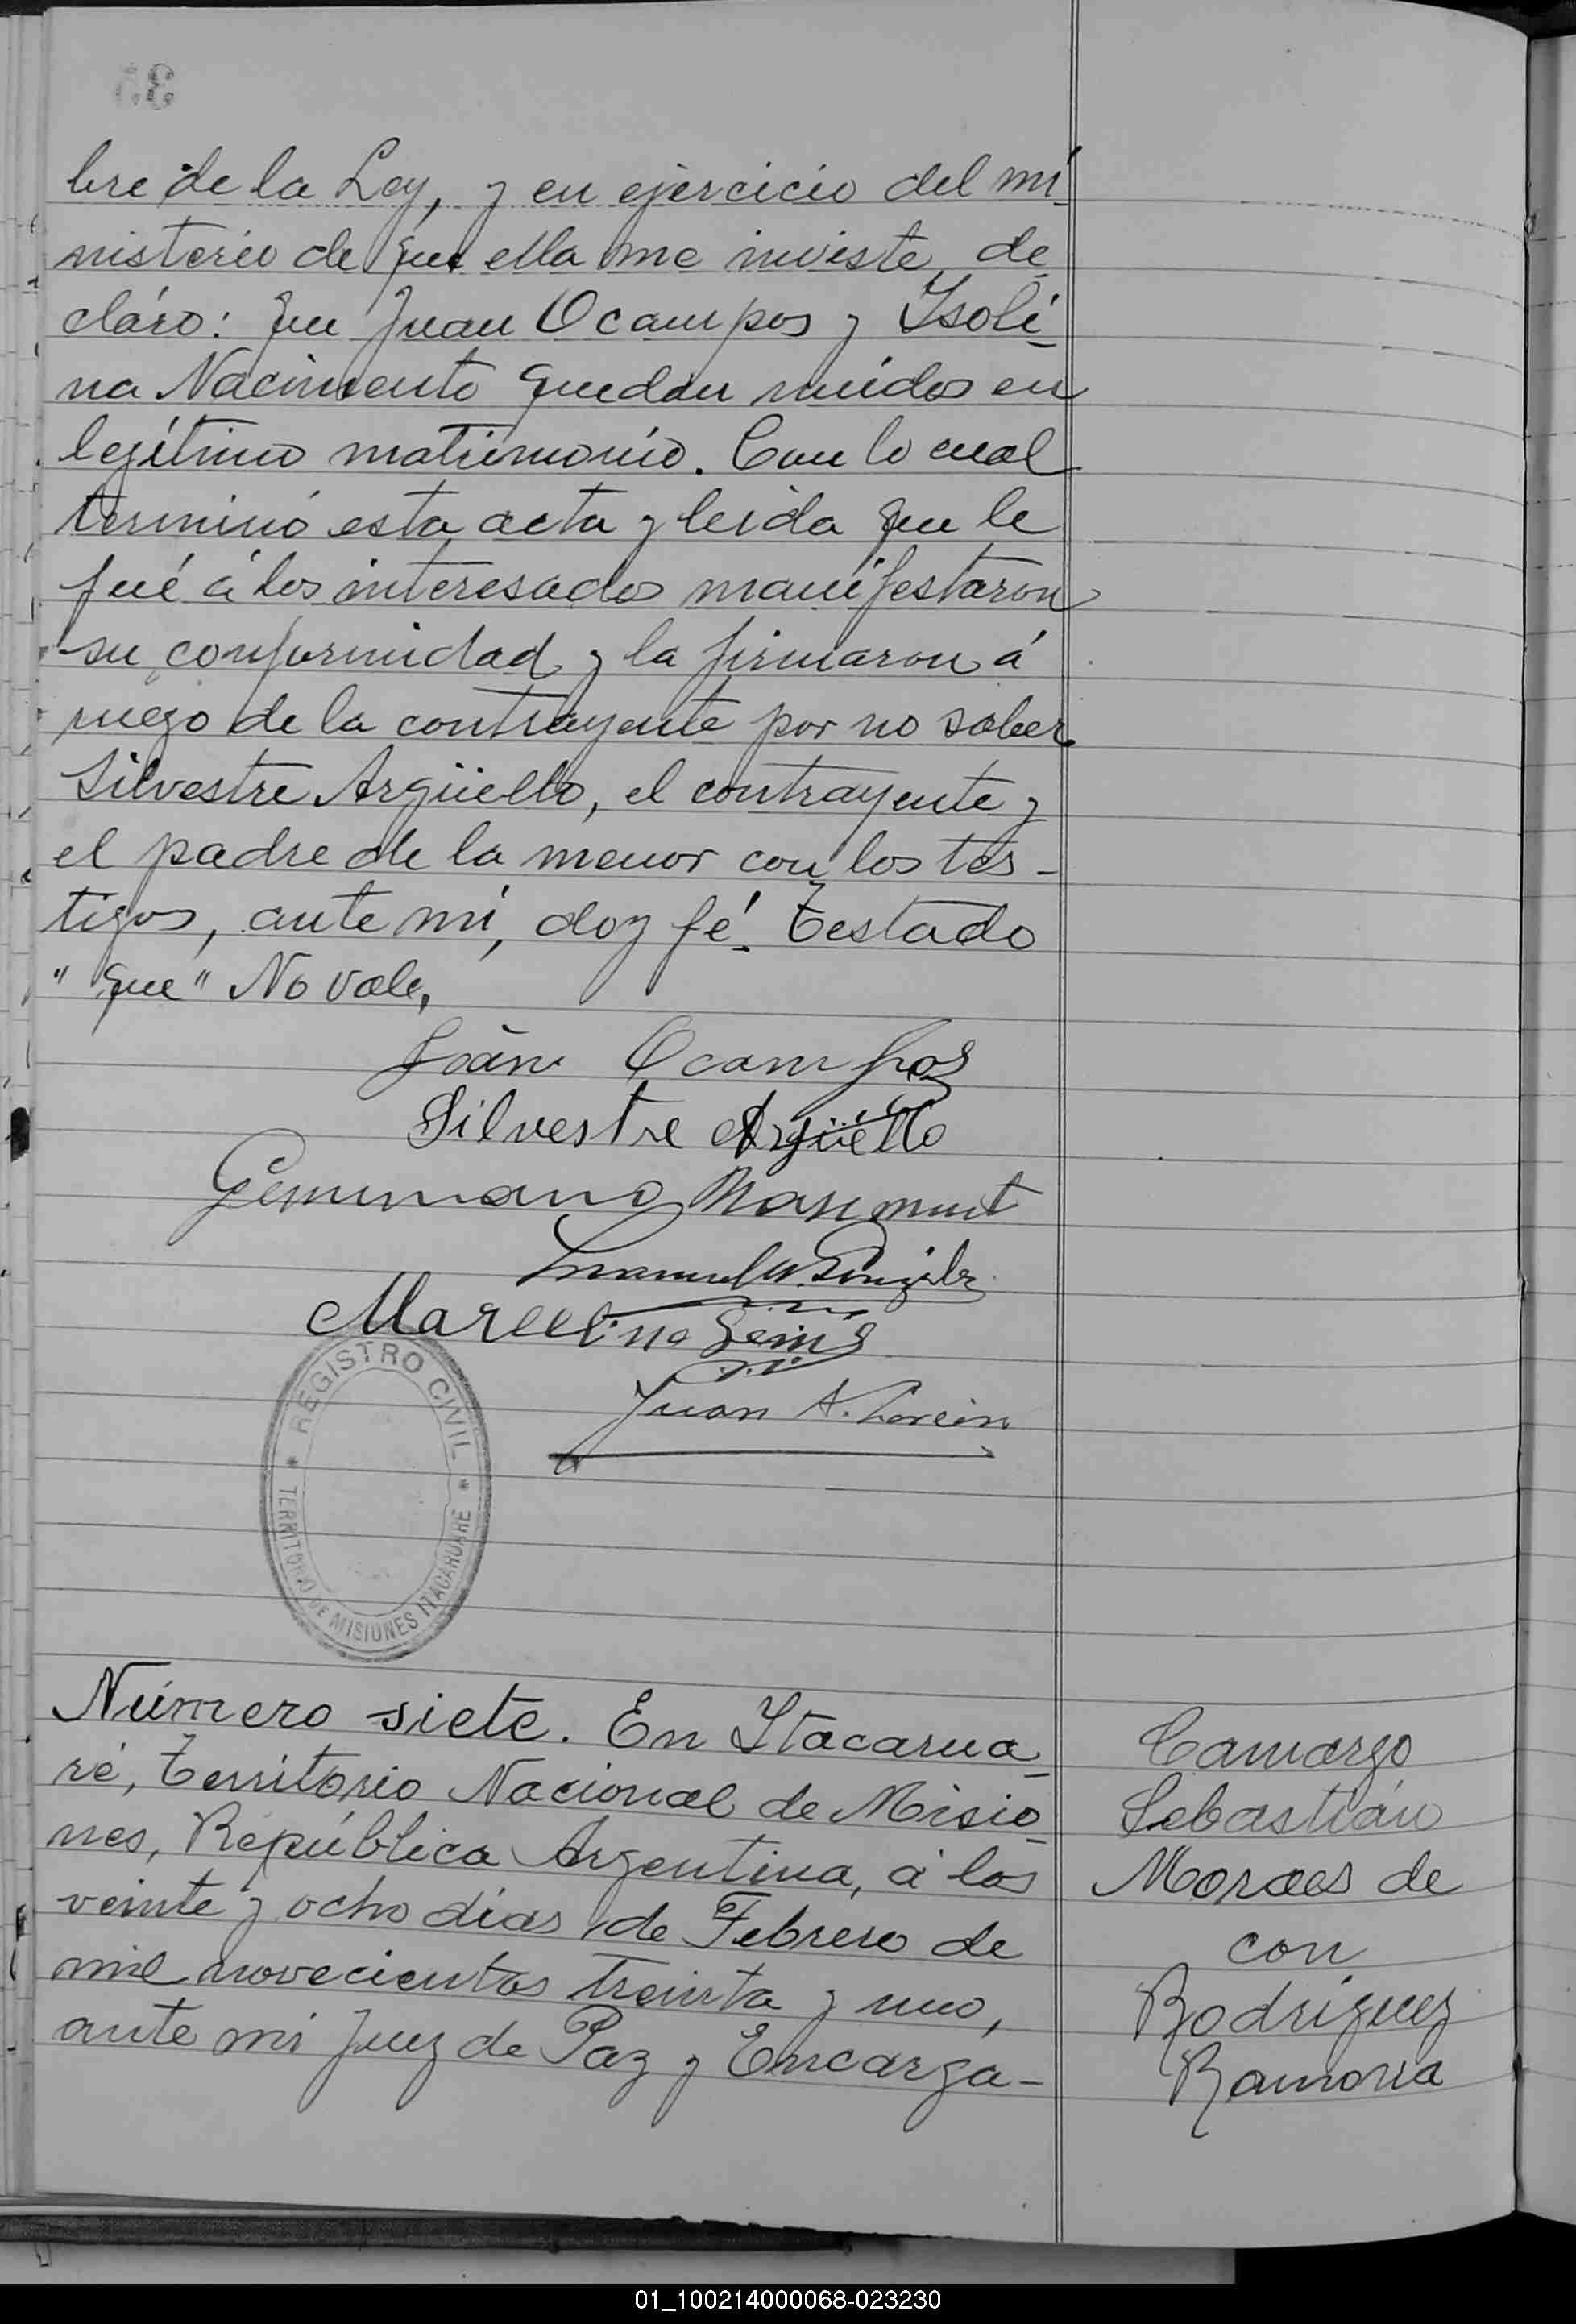 bre de la Ley, y en ejercicio del mi_
nisterio de que ella me inviste, de_
claro: que Juan Ocampos y Isoli_
na Nacimento quedan unidos en
legítimo matrimonio. Con lo cual
terminó esta acta y leida que le
fué á los interesados manifestaron
su conformidad y la firmaron á
ruego de la contrayente por no saber
Silvestre Argüello, el contrayente y
el padre de la menor con los tes-
tigos, ante mí, doy fé. Testado
"que" No vale,
Joán Ocampos
Silvestre Argüello
Manuel González
Marcelino
Juan A.
REGISTRO CIVIL
TERRITORIO DE MISIONES ITACARUARE
Número siete. En Itacarua_
ré, Territorio Nacional de Misio_
nes, República Argentina, á los
veinte y ocho dias de Febrero de
mil novecientos treinta y uno,
ante mi Juez de Paz y Encarga-
Camargo
Sebastián
Moraes de
con
Rodriguez
Ramona
01_100214000068-023230